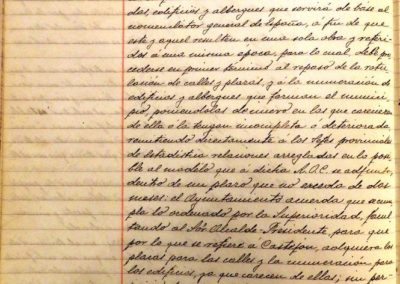 das, edificios y albergues que servirá de base al
nomenclátor general de España, á fin de que
este y aquel resulten en una sola obra y referi-
dos á una misma época, para lo cual debe pro-
cederse en primer término al repaso de la rotu-
lación de calles y plazas, y á la numeración de
edificios y albergues que forman el munici-
pio, poniéndolas de nuevo en las que carecieren
de ella ó la tengan incompleta ó deteriorada
remitiendo directamente á los Jefes provinciales
de estadística relaciones arregladas en lo posi-
ble al modelo que á dicha R.O.C. se adjunta,
dentro de un plazo que no exceda de dos
meses: el Ayuntamiento acuerda que se cum-
pla lo ordenado por la Superioridad, facul-
tando al Sor. Alcalde Presidente, para que
por lo que se refiere á Castefon, adquiera las
placas para las calles y la numeración para
los edificios, ya que carecen de ellas; sin per-